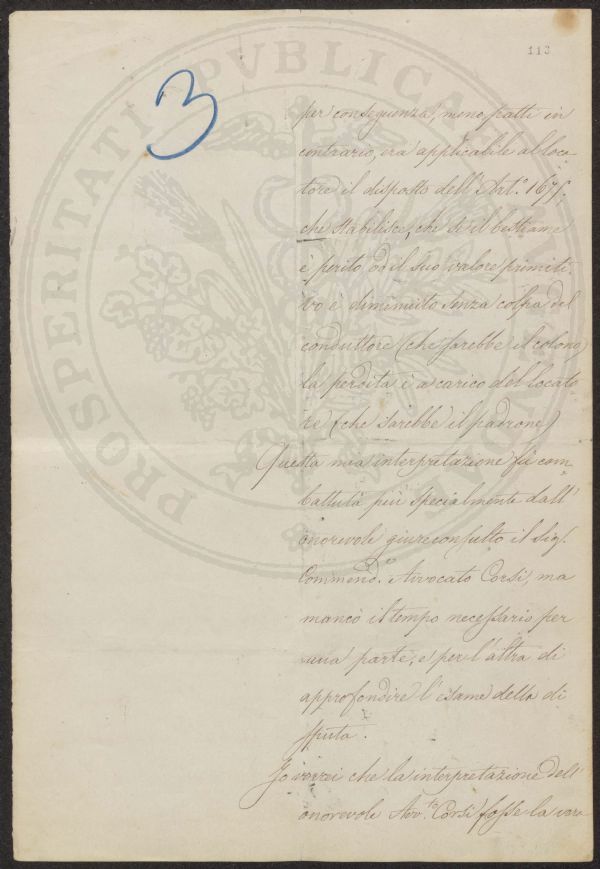 113
3
per conseguenza, meno patti in
contrario, era applicabile al loca-
tore il disposto dell'Art.° 1675,
che stabilisce, che se il bestiame
è perito od il suo valore primiti
vo è diminuito senza colpa del
conduttore (che sarebbe il colono)
la perdita è a carico del locato
re (che sarebbe il padrone)
Questa mia interpretazione fu com
battuta più specialmente dall'
onorevole giureconsulto il Sig.
Commend. Avvocato Corsi, ma
mancò il tempo necessario per
una parte, e per l'altra di
approfondire l'esame della di
sputa.
Io vorrei che la interpretazione dell'
onorevole Avv.to Corsi fosse la vera
PROSPERITATI PUBLICAE